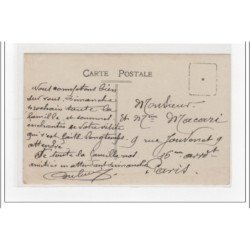 CARTE POSTALE
Nous comptons bien
sur vous dimanche
prochain toute la
famille et sommes
enchantés de votre visite
qui s'est faite longtemps
attendre
De toute la famille nos
amitiés en attendant dimanche
Monsieur
et Mme Macari
9 rue Jouvenet 9
16e
Paris.